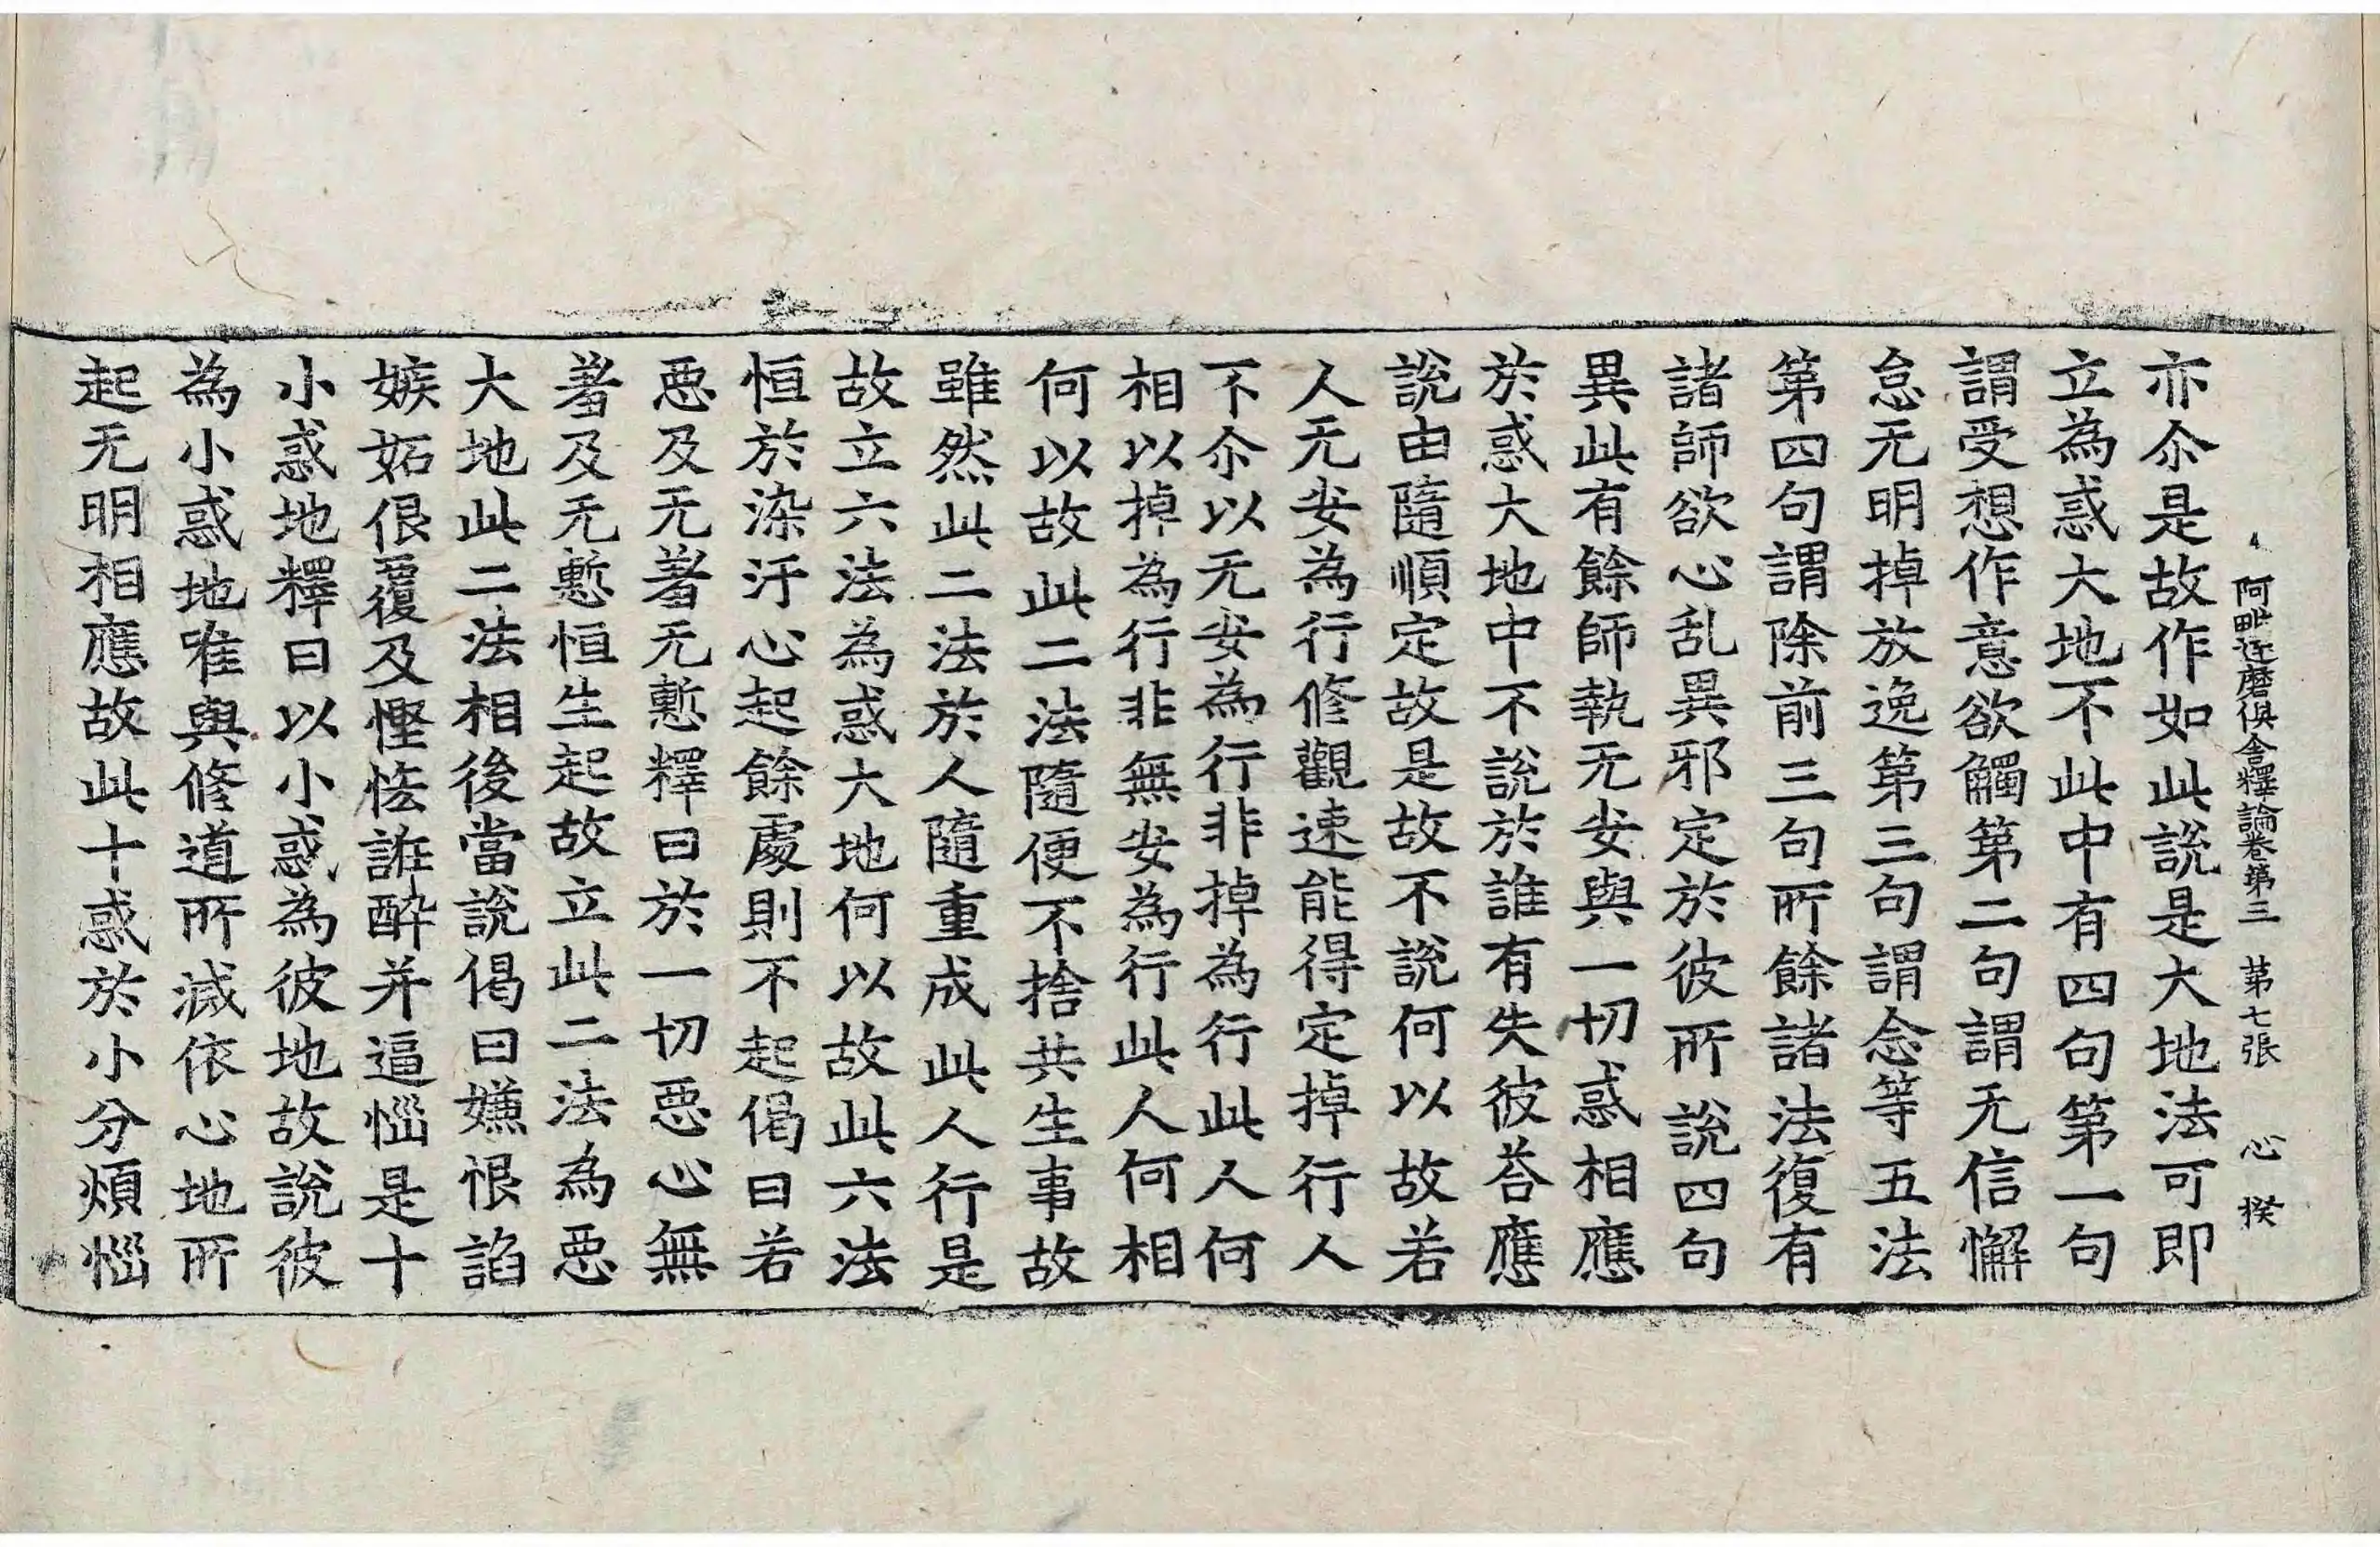 阿毗達磨俱舍釋論卷第三 第七張 心 揆
亦尒是故作如此說是大地法可即
立為惑大地不此中有四句第一句
謂受想作意欲觸第二句謂无信懈
怠无明掉放逸第三句謂念等五法
第四句謂除前三句所餘諸法復有
諸師欲心乱異邪定於彼所說四句
異此有餘師執无安與一切惑相應
於惑大地中不說於誰有失彼荅應
說由隨順定故是故不說何以故若
人无安為行修觀速能得定掉行人
不尒以无安為行非掉為行此人何
相以掉為行非無安為行此人何相
何以故此二法隨便不捨共生事故
雖然此二法於人隨重成此人行是
故立六法為惑大地何以故此六法
恒於染汙心起餘處則不起偈曰若
惡及无羞无慙釋曰於一切惡心無
羞及无慙恒生起故立此二法為惡
大地此二法相後當說偈曰嫌恨諂
嫉妬佷覆及慳恡誑醉并逼惱是十
小惑地釋曰以小惑為彼地故說彼
為小惑地唯與修道所滅依心地所
起无明相應故此十惑於小分煩惱